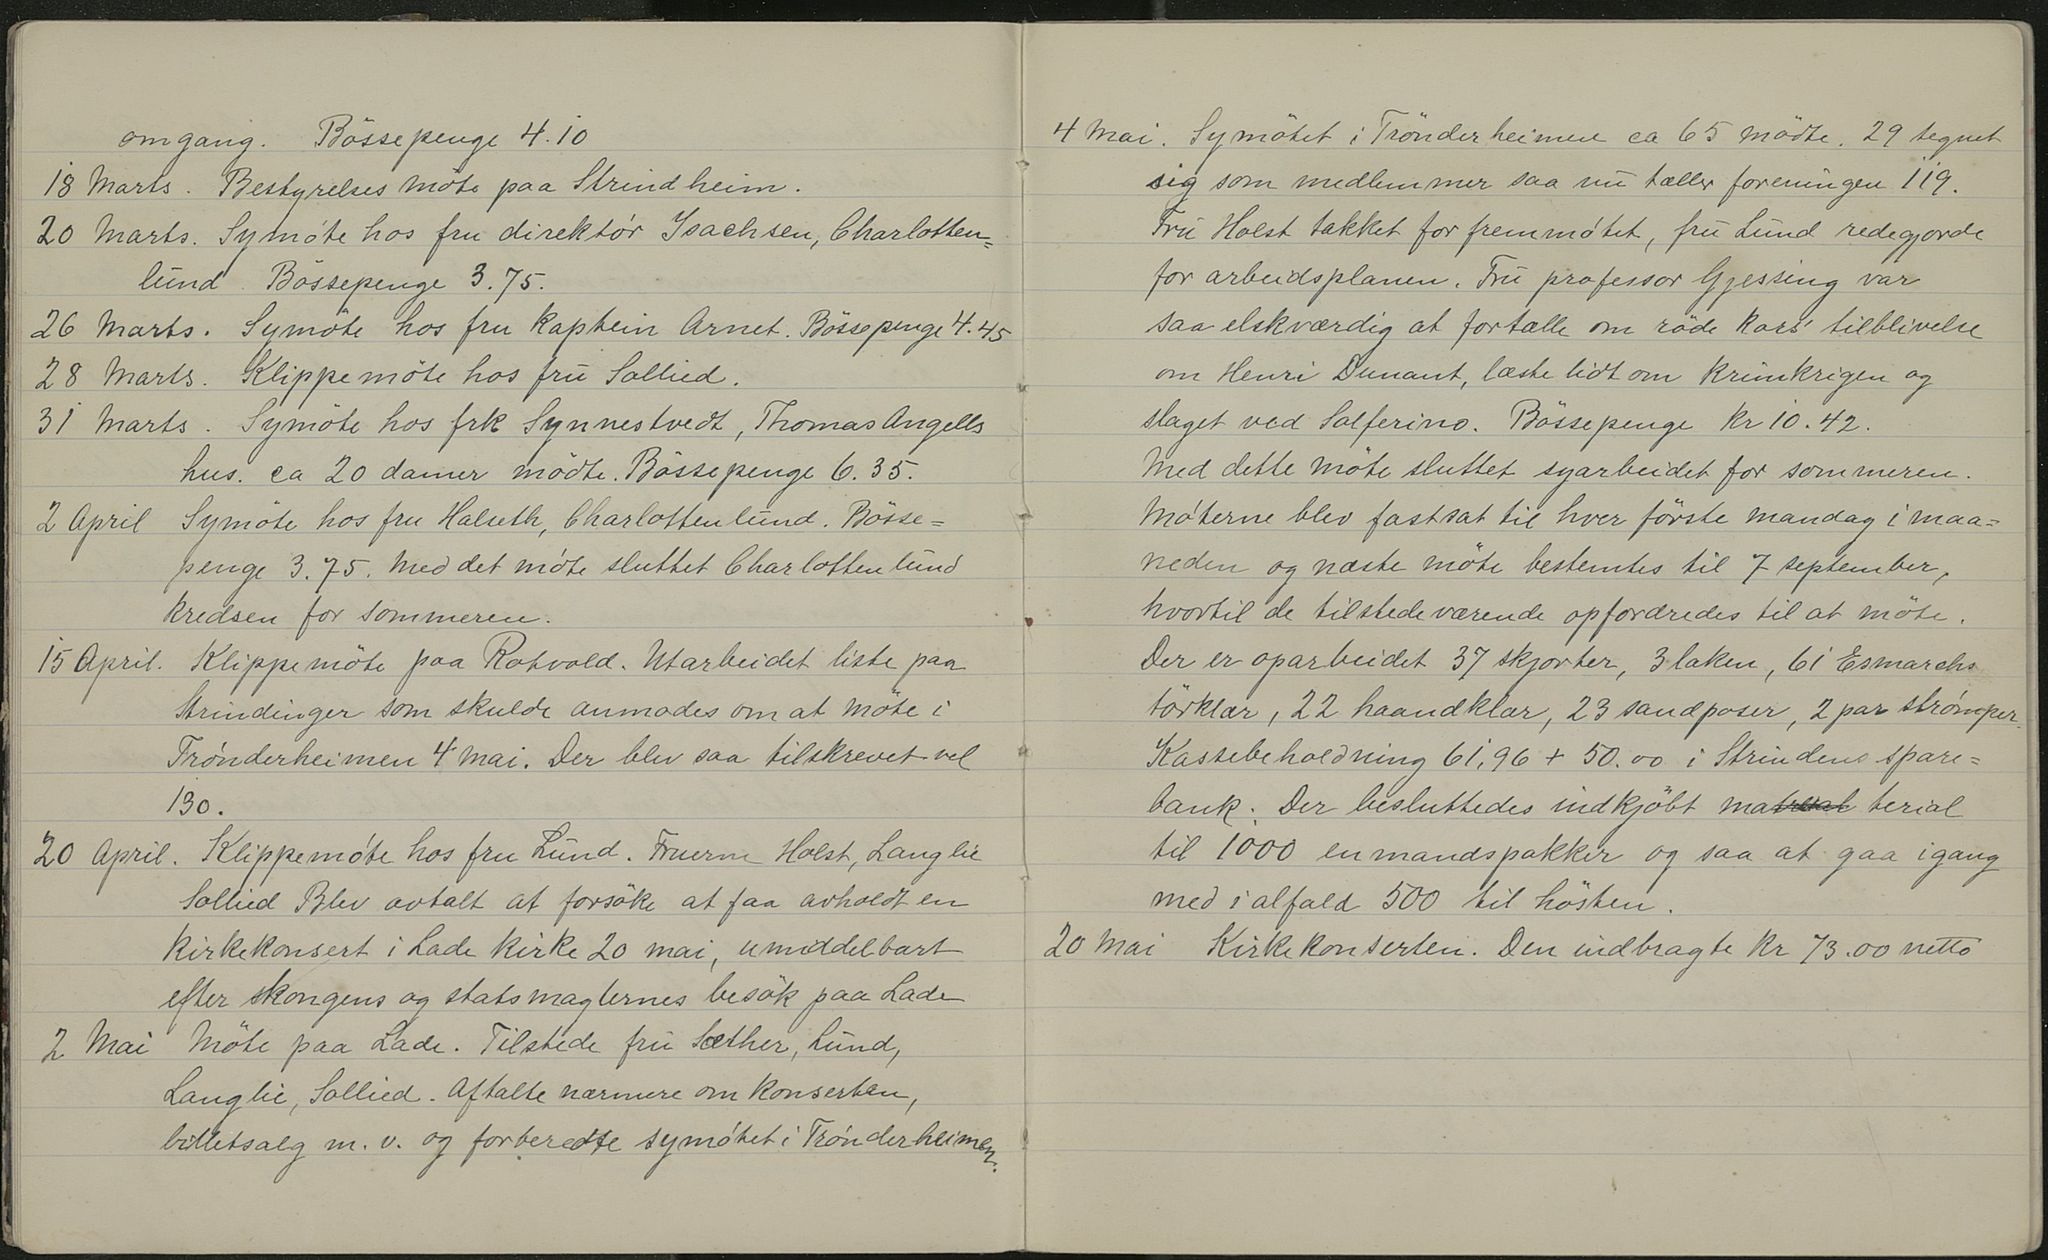 omgang. Bössepenge 4.10
18 Marts. Bestyrelses möte paa Strindheim.
20 Marts. Symöte hos fru direktör Isachsen, Charlotten=
lund. Bössepenge 3.75.
26 Marts. Symöte hos fru kaptein Arnet. Bössepenge 4.45
28 Marts. Klippemöte hos fru Sollied.
31 Marts. Symöte hos frk Synnestvedt, Thomas Angells
hus. ca 20 damer mödte. Bössepenge 6.35.
2 April Symöte hos fru Halseth, Charlottenlund. Bösse=
penge 3.75. Med det möte sluttet Charlottenlund
kredsen for sommeren.
15 April. Klippemöte paa Rotvold. Utarbeidet liste paa
Strindinger som skulde anmodes om at möte i
Trönderheimen 4 mai. Der blev saa tilskrevet vel
130.
20 April. Klippemöte hos fru Lund. Fruerne Holst, Langlie
Sollied Blev avtalt at forsöke at faa avholdt en
kirkekonsert i Lade kirke 20 mai, umiddelbart
efter kongens og statsmagternes besök paa Lade
2 Mai Möte paa Lade. Tilstede fru Sæther, Lund,
Langlie, Sollied. Aftalte nærmere om konserten,
billetsalg m.v. og forberedte symötet i Trönderheimen.
4 Mai. Symötet i Trönderheimen ca 65 mödte. 29 tegnet
sig som medlemmer saa nu tæller foreningen 119.
Fru Holst takket for fremmötet, fru Lund redegjorde
for arbeidsplanen. Fru professor Gjessing var
saa elskværdig at fortælle om röde kors' tilblivelse
om Henri Dunant, læste lidt om krimkrigen og
slaget ved Solferino. Bössepenge kr 10.42.
Med dette möte sluttet syarbeidet for sommeren.
Möterne blev fastsat til hver förste mandag i maa=
neden og næste möte bestemtes til 7 september,
hvortil de tilstedeværende opfordredes til at möte.
Der er oparbeidet 37 skjorter, 3 laken, 61 Esmarchs
törklær, 22 haandklær, 23 sandposer, 2 par strömper.
Kassebeholdning 61,96 + 50.00 i Strindens spare=
bank. Der besluttedes indkjöbt material terial
til 1000 enmandspakker og saa at gaa igang
med ialfald 500 til hösten.
20 Mai Kirkekonserten. Den indbragte kr 73.00 netto